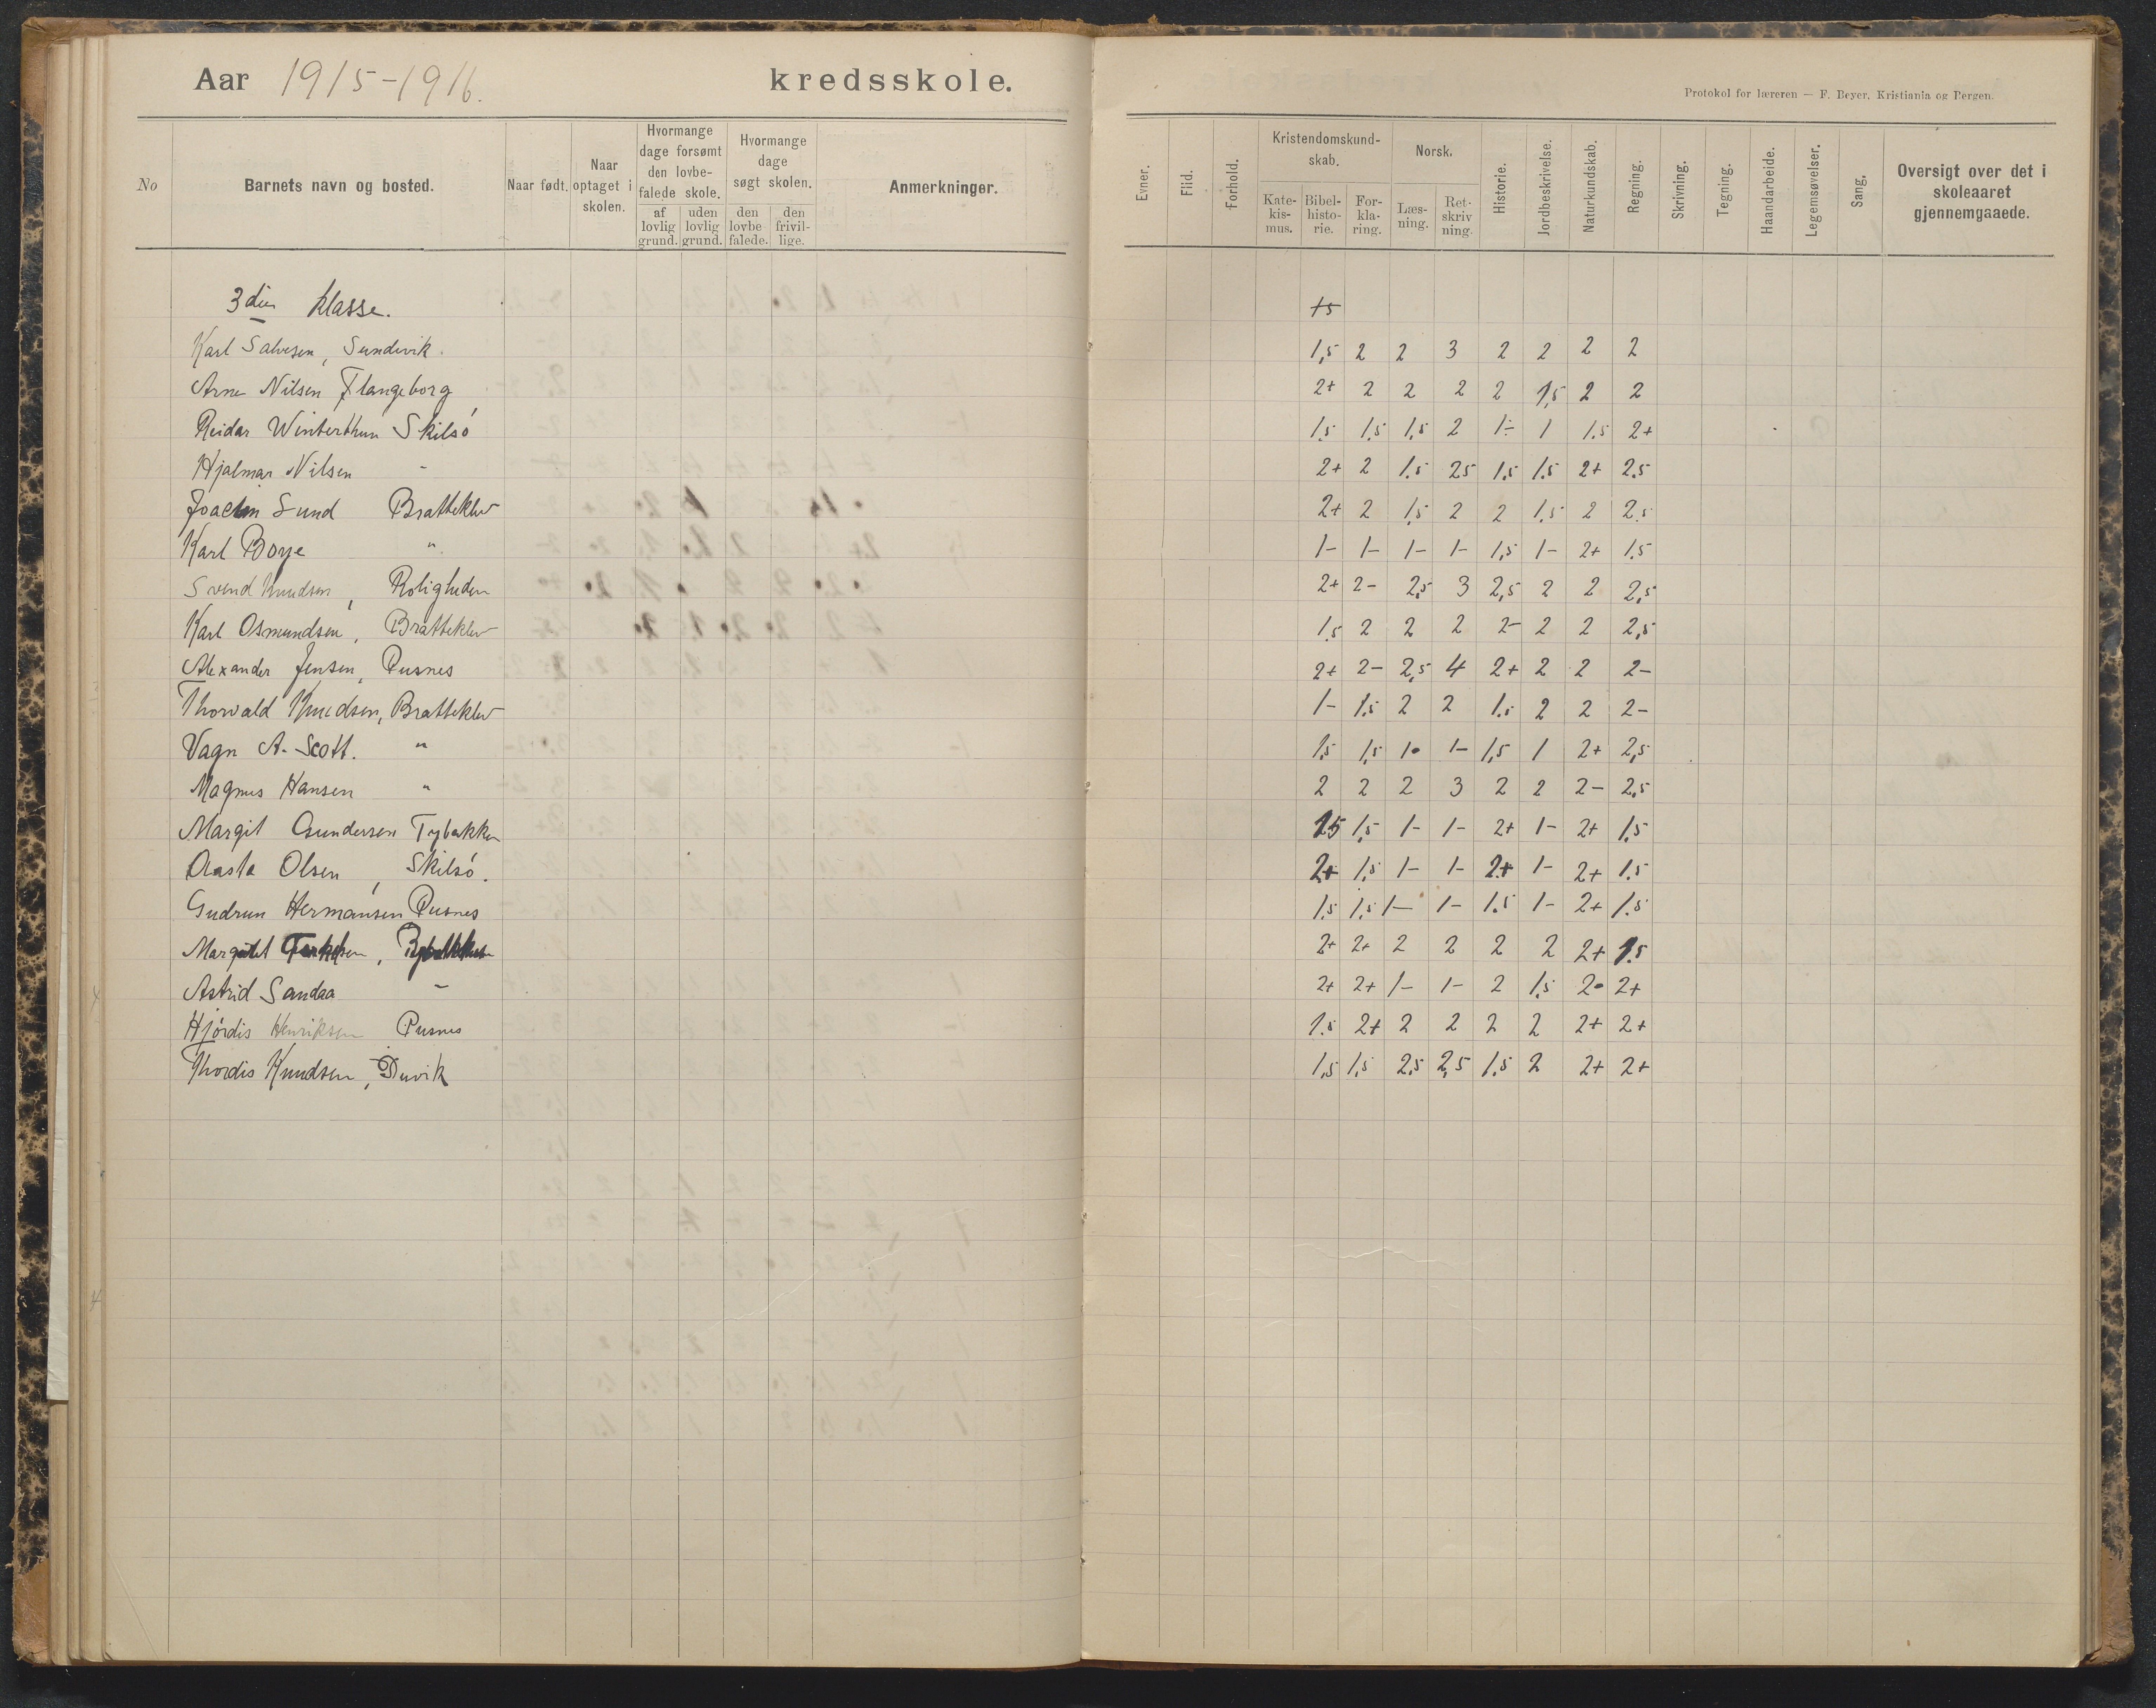 Aar 1915-1916. kredsskole.
No
Barnets navn og bosted.
Naar født.
Naar optaget i skolen.
Hvormange dage forsømt den lovbefalede skole.
af lovlig grund.
uden lovlig grund.
Hvormange dage søgt skolen.
den lovbefalede.
den frivillige.
Anmerkninger.
3die klasse.
Karl Salvesen, Sundevik.
Arne Nilsen Flangeborg
Reidar Winterthun Skilsó
Hjalmar Nilsen -
Joachim Sund Bratteklev
Karl Boye "
Svend Knudsen, Roligheden
Karl Osmundsen, Bratteklev
Alexander Jensen, Pusnes
Thorvald Knudsen, Bratteklev
Vagn A. Scott. "
Magnus Hansen "
Margit Gundersen Tybakken
Aasta Olsen, Skilsó.
Gudrun Hermansen Pusnes
Astrid Sandaa -
Hjórdis Henriksen Pusnes
Thordis Knudsen, Duvik
Protokol for læreren — F. Beyer, Kristiania og Bergen.
Evner.
Flid.
Forhold.
Kristendomskundskab.
Katekismus.
Bibelhistorie.
Forklaring.
Norsk.
Læsning.
Retskrivning.
Historie.
Jordbeskrivelse.
Naturkundskab.
Regning.
Skrivning.
Tegning.
Haandarbeide.
Legemsøvelser.
Sang.
Oversigt over det i skoleaaret gjennemgaaede.
1,5 2 2 3 2 2 2 2
2+ 2 2 2 2 1,5 2 2
1.5 1,5 1,5 2 1÷ 1 1.5 2+
2+ 2 1.5 25 1,5 1.5 2+ 2.5
2+ 2 1,5 2 2 1.5 2 2.5
1- 1- 1- 1- 1,5 1- 2+ 1.5
2+ 2- 2,5 3 2,5 2 2 2,5
1.5 2 2 2 2- 2 2 2,5
2+ 2- 2,5 4 2+ 2 2 2-
1- 1.5 2 2 1.5 2 2 2-
1.5 1,5 1- 1- 1,5 1 2+ 2,5
2 2 2 3 2 2 2- 2,5
15 1,5 1- 1- 2+ 1- 2+ 1.5
2+ 1,5 1- 1- 2+ 1- 2+ 1.5
1,5 1,5 1- 1- 1.5 1- 2+ 1.5
2+ 2+ 2 2 2 2 2+ 1.5
2+ 2+ 1- 1- 2 1,5 2- 2+
1.5 2+ 2 2 2 2 2+ 2+
1,5 1,5 2,5 2,5 1,5 2 2+ 2+